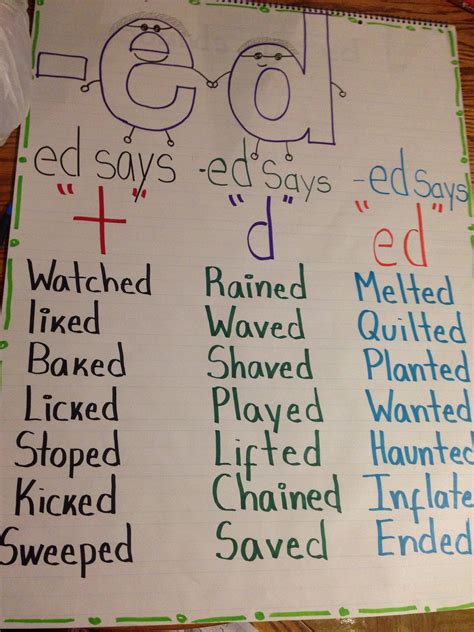 -ed
ed says
"t"
Watched
liked
Baked
Licked
Stoped
Kicked
Sweeped
-ed says
"d"
Rained
Waved
Shaved
Played
Lifted
Chained
Saved
-ed says
"ed"
Melted
Quilted
Planted
Wanted
Haunted
Inflate
Ended